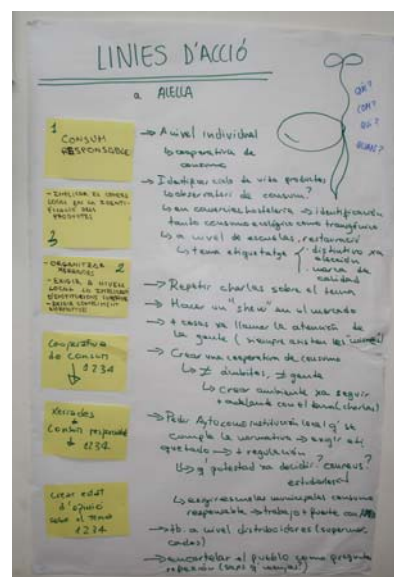 LINIES D'ACCIÓ
a ALELLA
QUÈ?
COM?
QUAN?
1
CONSUM
RESPONSABLE
- IMPLICAR EL COMERÇ
LOCAL EN LA IDENTI-
FICACIÓ DELS
PRODUCTES
3
- ORGANITZAR 2
XERRADES
- EXIGIR, A NIVELL
LOCAL
Cooperativa
de consum
1 2 3 4
Xerrades
Consum responsable
1 2 3 4
Crear estat
d'opinió
sobre el tema
1 2 3 4
→ A nivel individual
↳ cooperativa de
consumo
→ Identificar ciclo de vida productos
↳ observatori de consum?
↳ en comercios hostelería → identificación
tanto consumo ecológico como transgénico
↳ a nivel de escuelas, restauració
↳ tema etiquetatge - distintivo xa
elección
- marca de
calidad
→ Repetir charlas sobre el tema
→ Hacer un "show" en el mercado
→ + cosas xa llamar la atención de
la gente (siempre asisten los mismos)
→ Crear una cooperativa de consumo
↳ ≠ ámbitos, ≠ gente
↳ crear ambiente xa seguir
+ adelante con el tema (charlas)
→ Pedir Ayto como institución local q' se
cumpla la normativa → exigir eti
quetado → + regulación
↳ q' potestad xa decidir?
↳ exigir escuelas municipales consumo
responsable → trabajo + fuerte con
→ tb. a nivel distribuidores (supermer
cados)
→ encartelar el pueblo como pregunta
reflexión (saps q' menjas?)